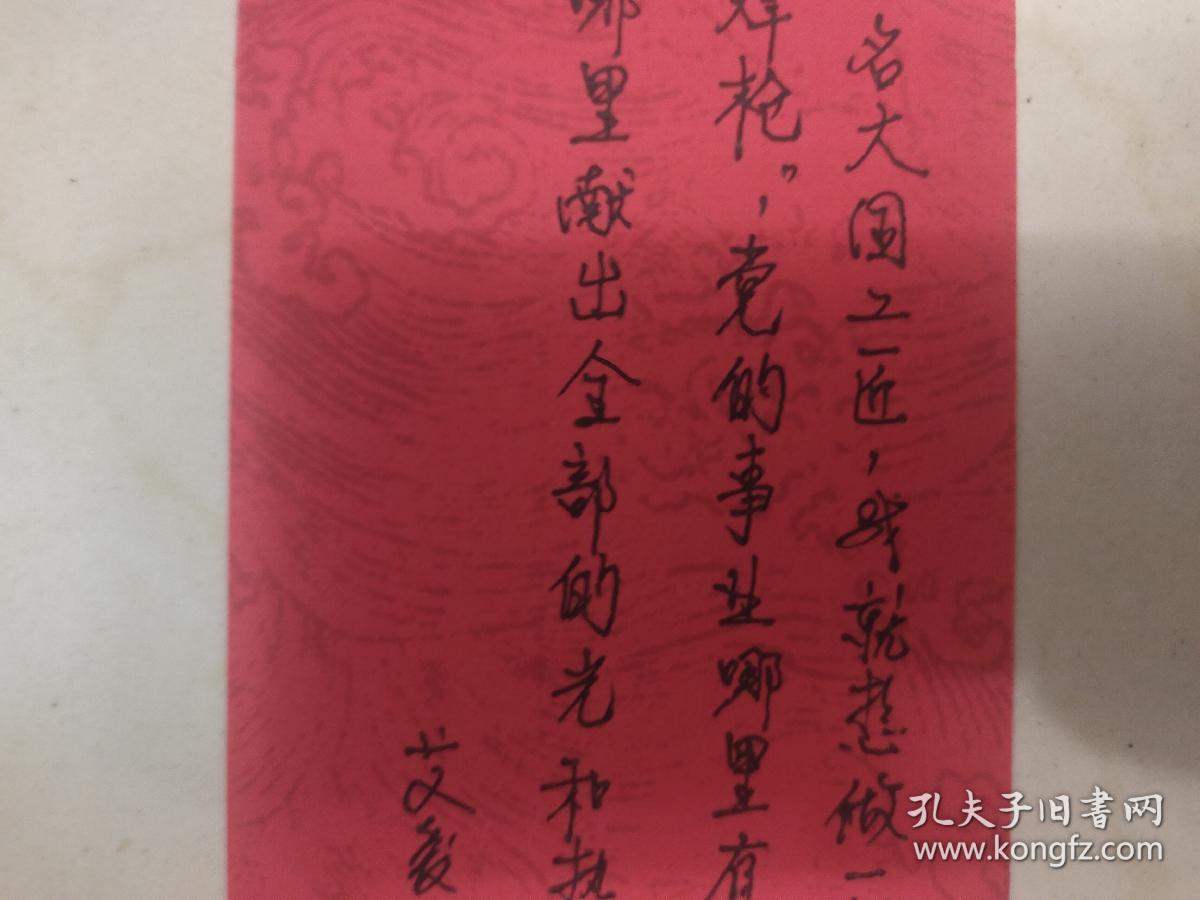 名大国工匠，我就想做一
焊枪”，党的事业哪里有
哪里献出全部的光和热
艾爱
孔夫子旧书网
www.kongfz.com